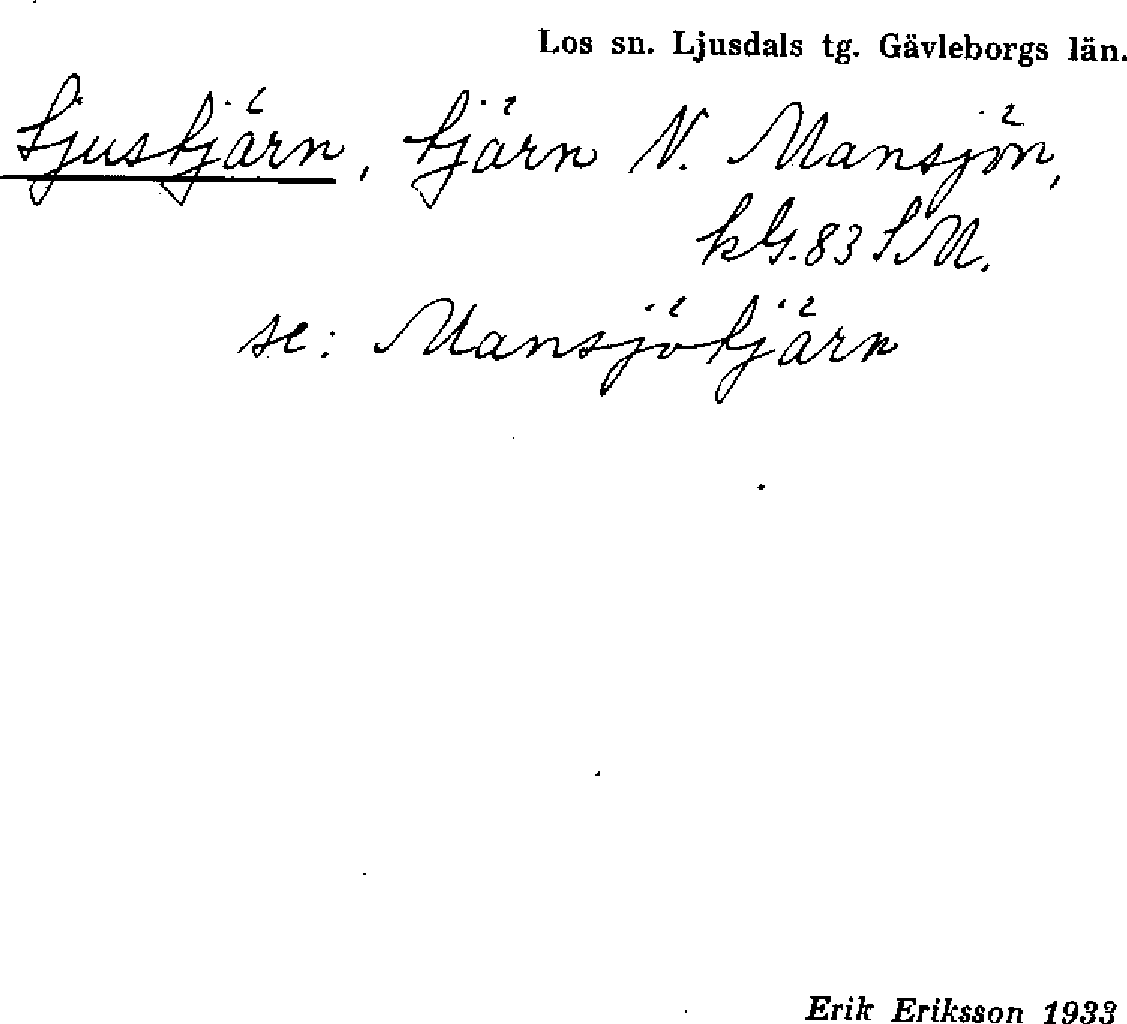 Los sn. Ljusdals tg. Gävleborgs län.
Ljustjärn, tjärn N. Mansjön,
kG. 83 SM.
se: Mansjötjärn
Erik Eriksson 1933